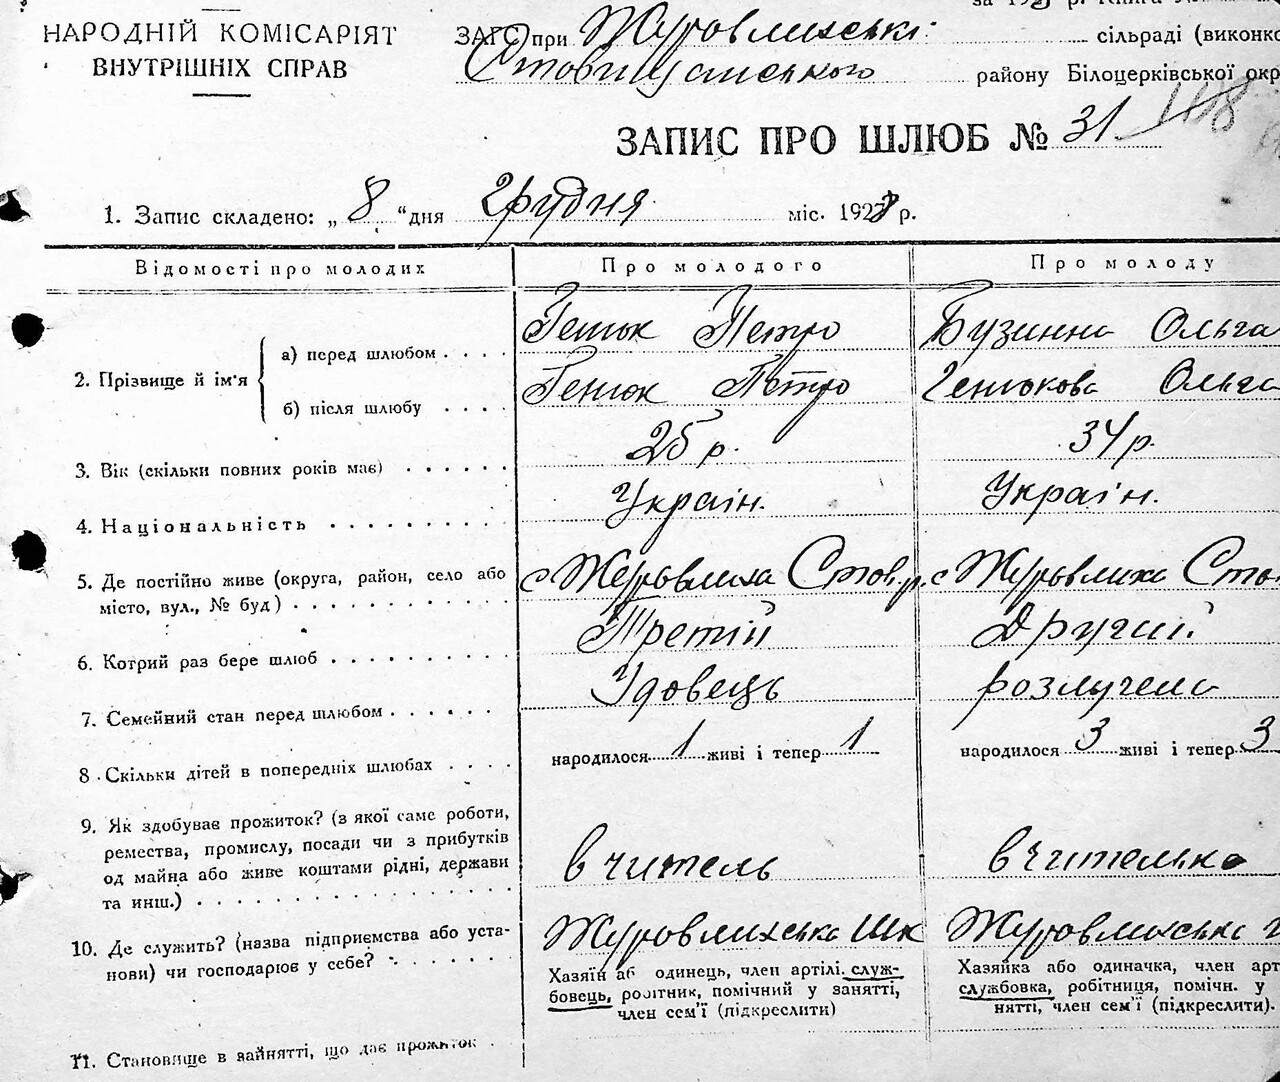 НАРОДНІЙ КОМІСАРІЯТ
ВНУТРІШНІХ СПРАВ
ЗАГС при Журовлиській сільраді (виконко
Ставищанського району Білоцерківської окр
ЗАПИС ПРО ШЛЮБ № 31 118
1. Запис складено: „ 8 “ дня Грудня міс. 1928 р.
Відомості про молодих Про молодого Про молоду
2. Прізвище й ім'я
а) перед шлюбом . . . . Генюк Петро Бузинна Ольга
б) після шлюбу . . . . Генюк Петро Генюкова Ольга
3. Вік (скільки повних років має) . . . . . . 25 р. 34 р.
4. Національність . . . . . . . . . Україн. Україн.
5. Де постійно живе (округа, район, село або
місто, вул., № буд) . . . . . . . . . . с Журовлиха Стов. р. с Журовлиха Сто
6. Котрий раз бере шлюб . . . . . . . . . Третій Другий
7. Семейний стан перед шлюбом . . . . . . Удовець розлучена
8. Скільки дітей в попередніх шлюбах . . . . народилося 1 живі і тепер 1 народилося 3 живі і тепер 3
9. Як здобував прожиток? (з якої саме роботи,
ремества, промислу, посади чи з прибутків
од майна або живе коштами рідні, держави
та инш.) . . . . . . . . . . . . . . . вчитель вчителька
10. Де служить? (назва підприємства або уста-
нови) чи господарює у себе? . . . . . . Журовлиська Шк Журовлиська
Хазяїн аб одинець, член артілі, служ-
бовець, робітник, помічний у занятті,
член сем'ї (підкреслити)
Хазяйка або одиначка, член арт
службовка, робітниця, помічн. у
нятті, член сем'ї (підкреслити).
11. Становище в зайнятті, що дає прожиток .